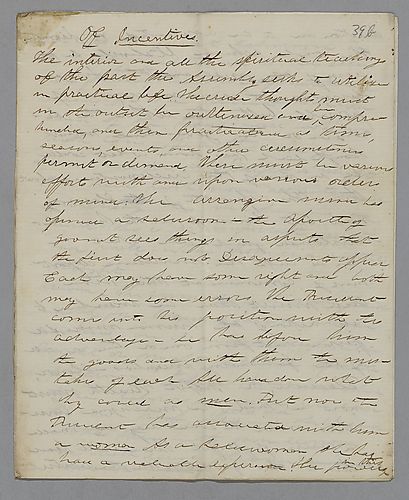 Of Incentive.
39b
The interior and all the spiritual teachings
of the past the Assembly seeks to utilize
in practical life. The crude thought must
in its outset be outlined and compre-
hended, and then practicalized as time,
season, events, and other circumstances
permit or demand. There must be various
effort with and upon various orders
of mind. The arranging mind has
opened a saleroom
good sees things in aspects that
the first does not
Each may have some right and both
may have some errors. The
comes into his position with the
advantage he has before him
the goods and with them the mis-
takes of each. All have done what
they could as men. But now the
has associated with him
a woman As a saleswoman she has
had a valuable experience in this